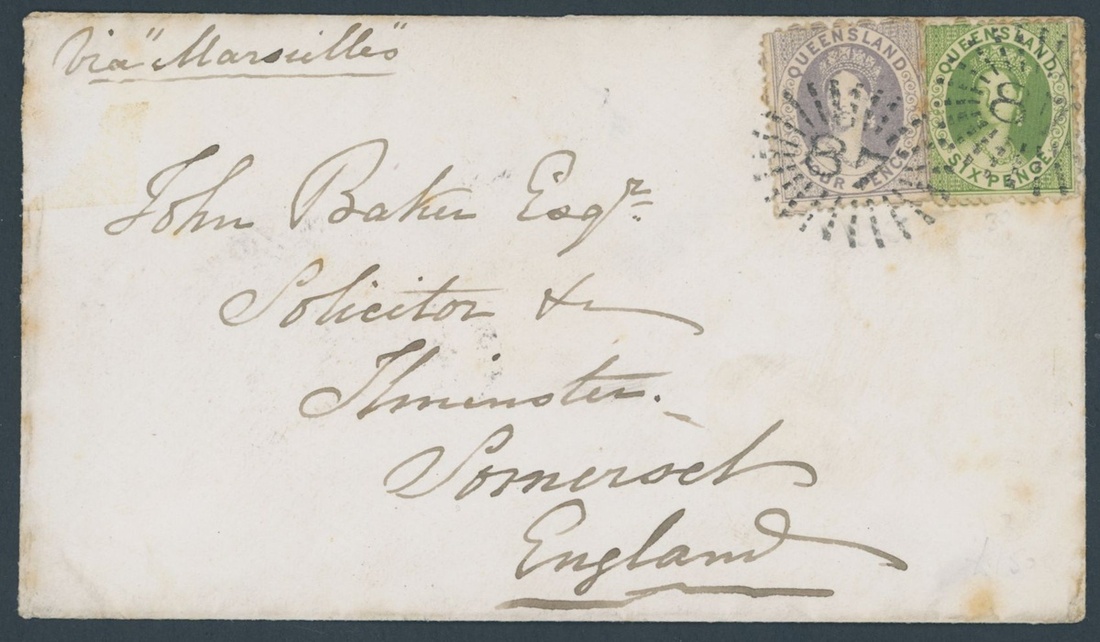 Via "Marseilles"
QUEENSLAND
FOUR PENCE
QUEENSLAND
SIX PENCE
87
8
John Baker Esqr
Solicitor &c
Ilminster.
Somerset
England